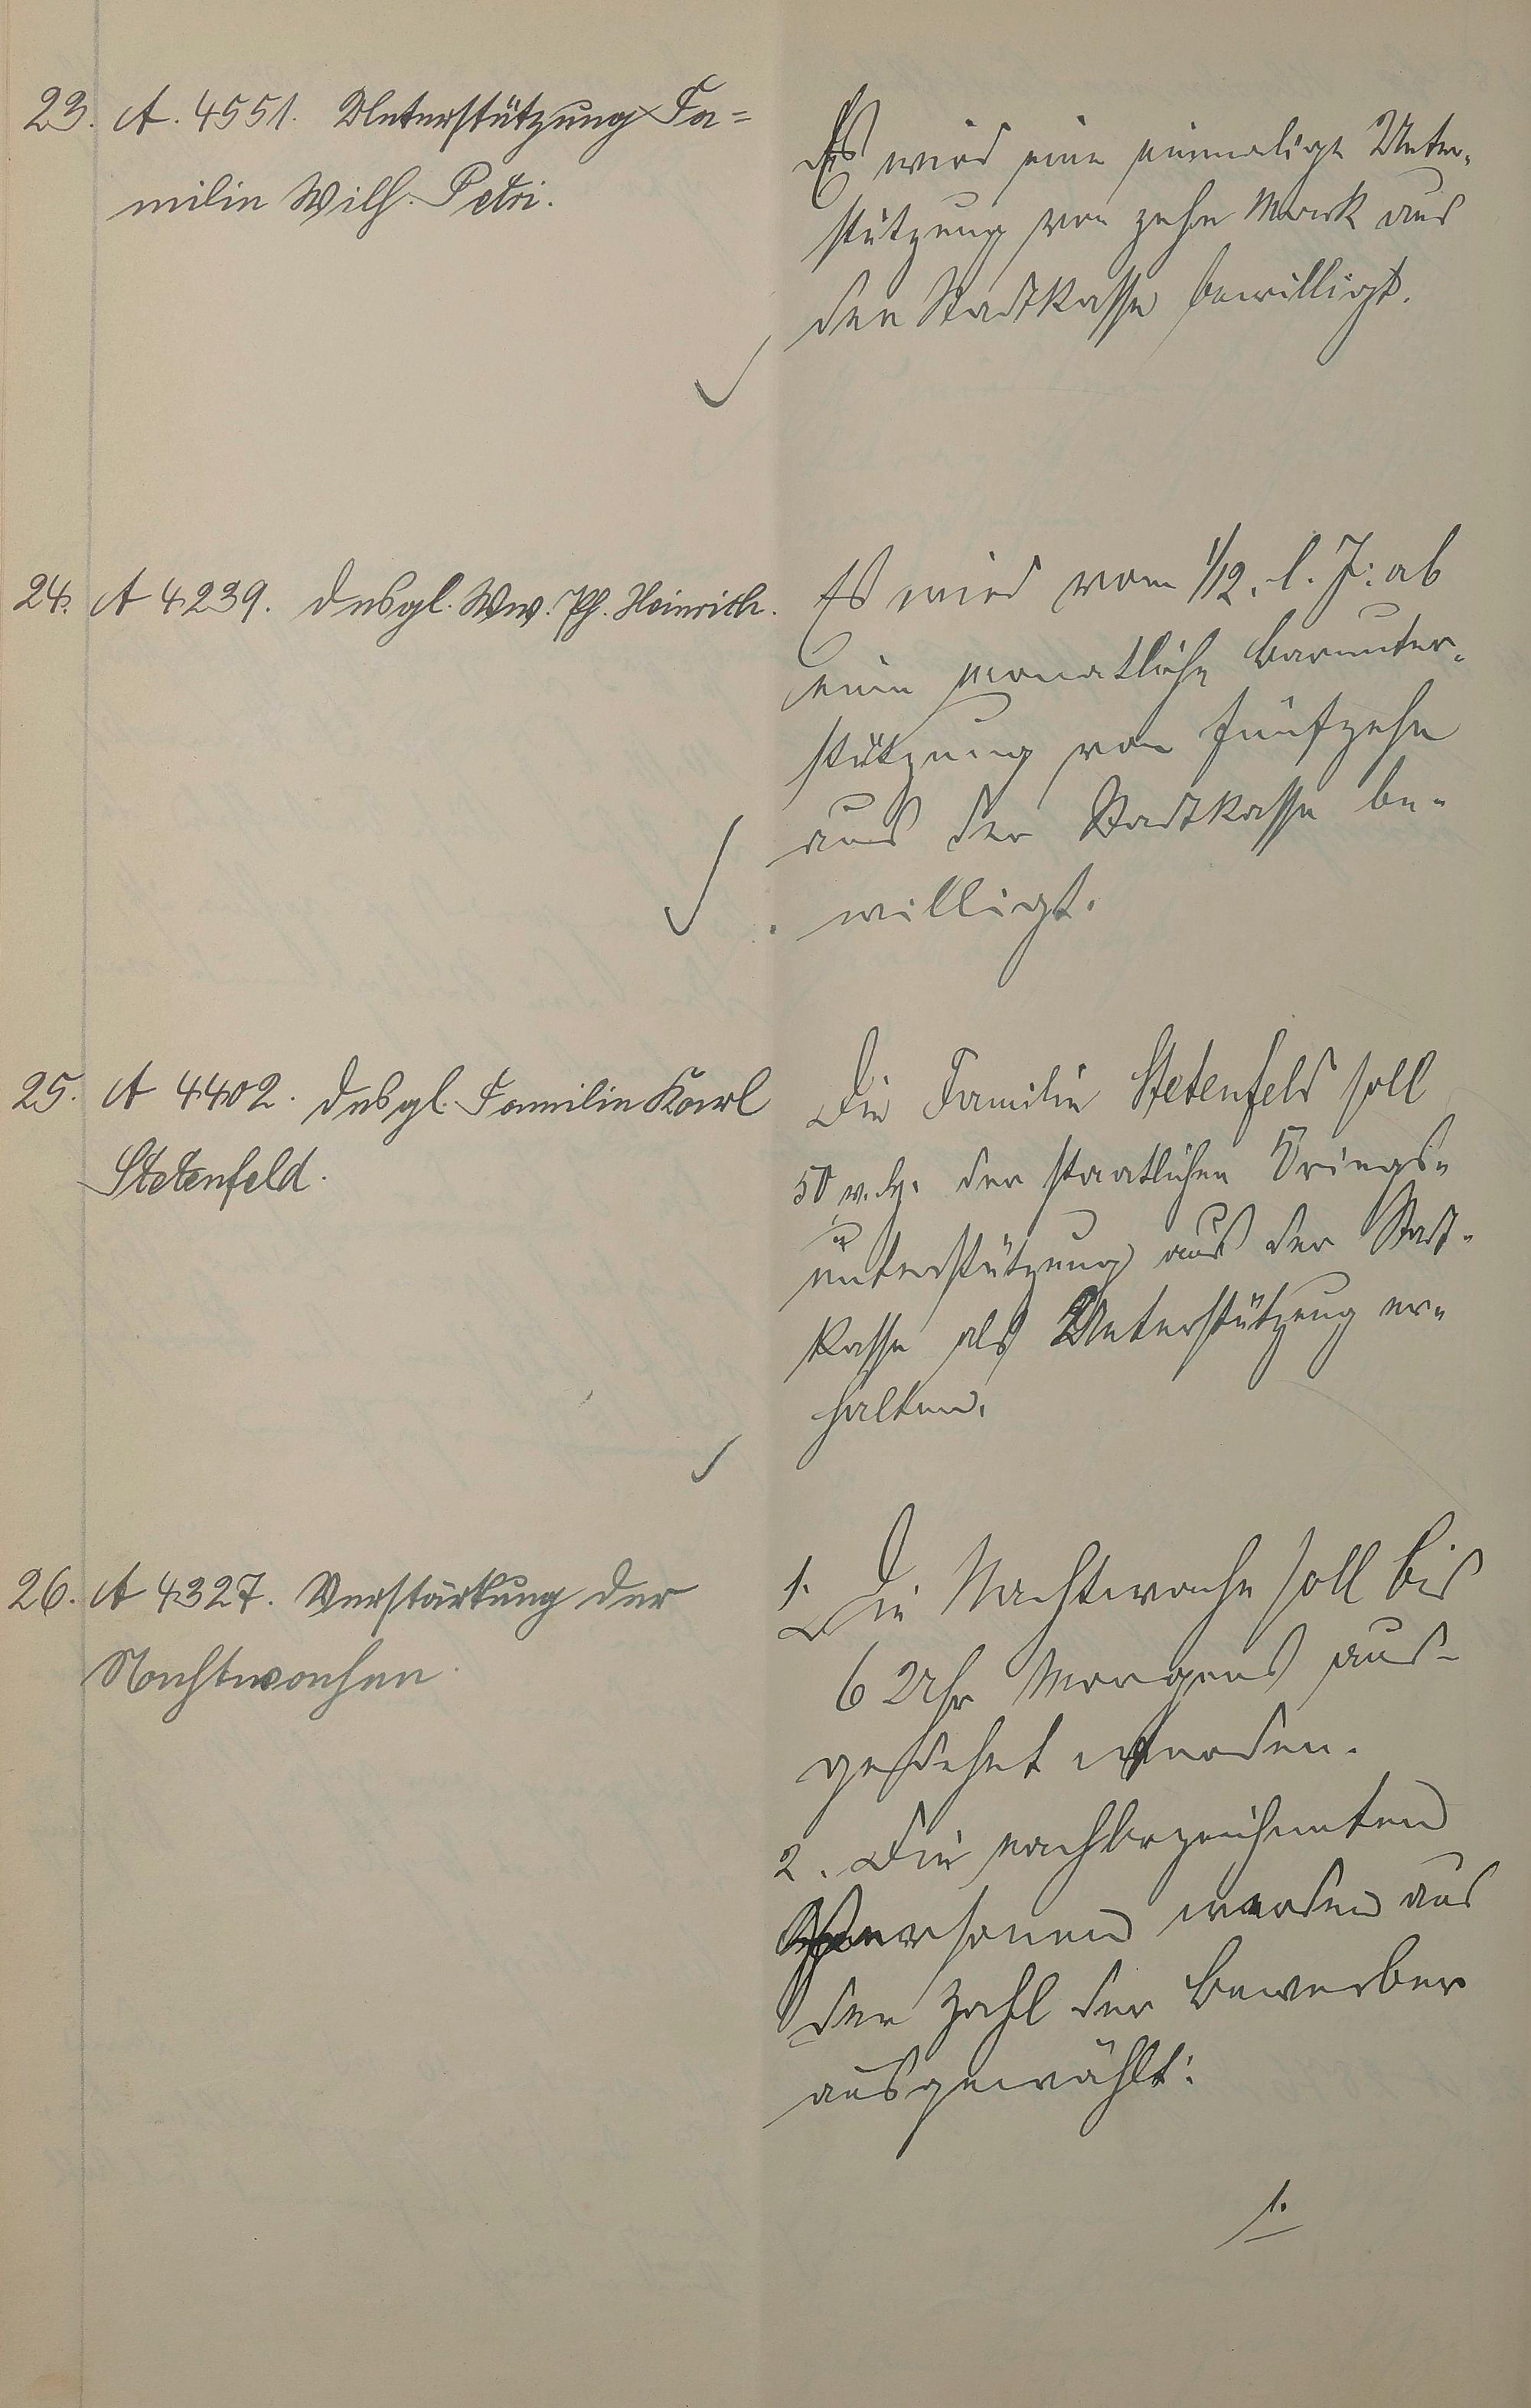 23. A. 4551. Unterstützung Fa=
milie Wilh. Petri.
Es wird eine einmalige Unter-
stützung von zehn Mark aus
der Stadtkasse bewilligt.
24. A 4239. desgl. Ww. Ph. Heinrich.
Es wird vom 1/12. l. J. ab
eine monatliche Barunter-
stützung von fünfzehn
aus der Stadtkasse be-
willigt.
25. A 4402. desgl. Familie Karl
Stetenfeld.
Die Familie Stetenfeld soll
50 v. H. der staatlichen Kriegs-
unterstützung aus der Stadt-
kasse als Unterstützung er-
halten.
26. A 4327. Verstärkung der
Nachtwachen.
1. Die Nachtwache soll bis
6 Uhr Morgens aus-
gedehnt werden.
2. Die nachbezeichneten
Personen werden aus
der Zahl der Bewerber
ausgewählt:
1.